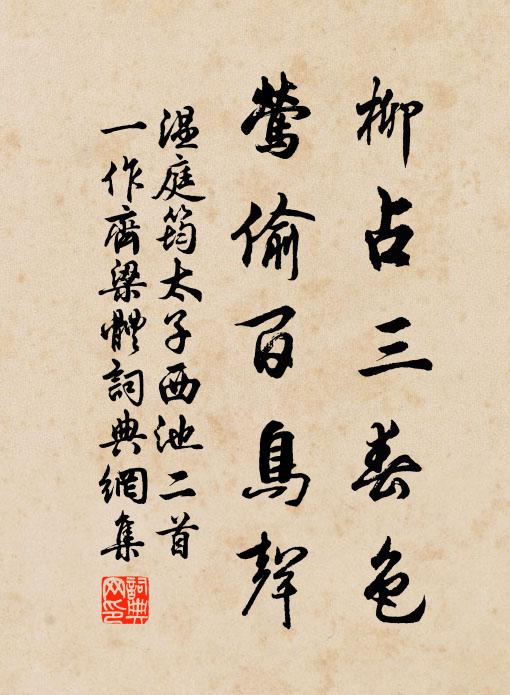 柳占三春色
鶯偷百鳥聲
溫庭筠太子西池二首
一作齊梁體詞典網集
詞典網印